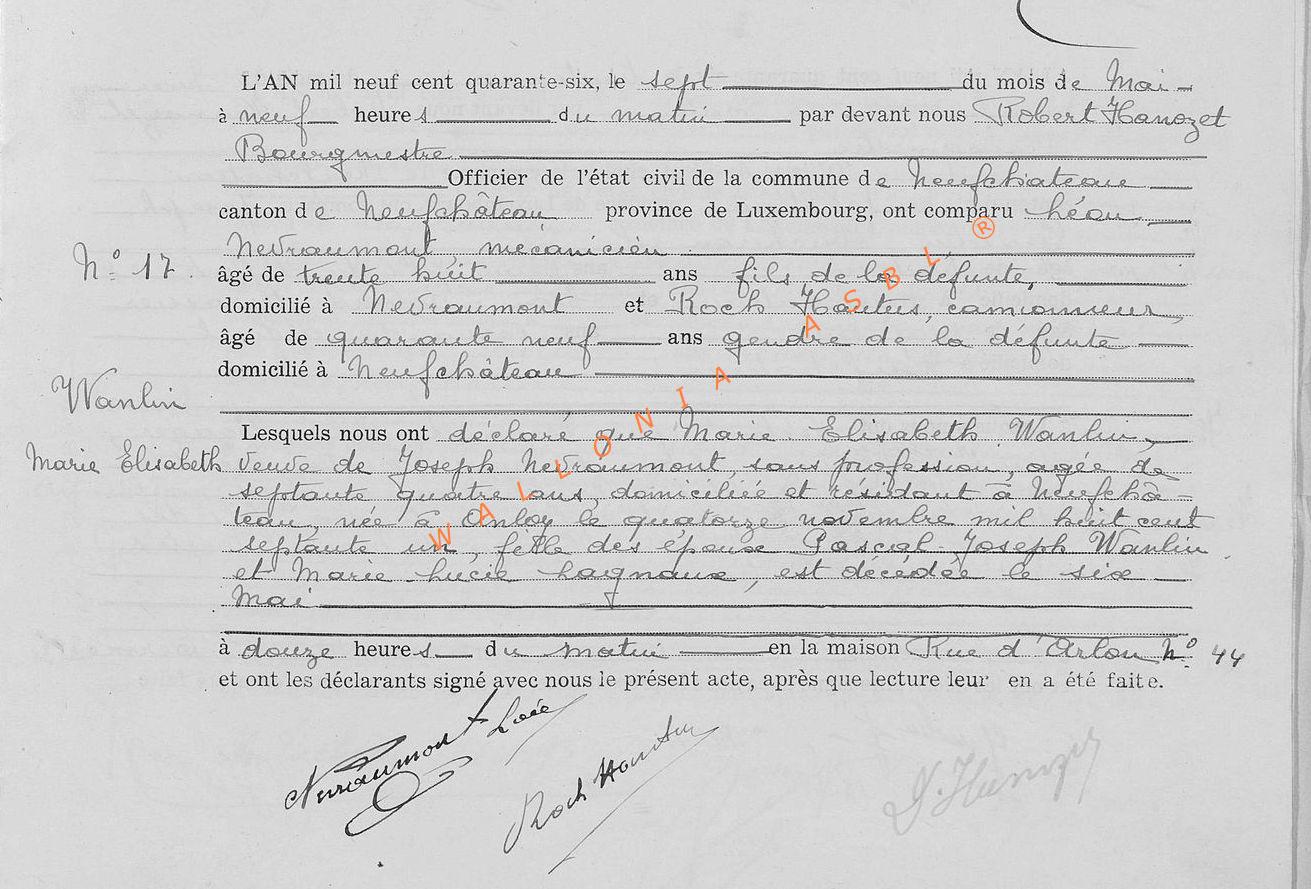 L'AN mil neuf cent quarante-six, le sept du mois de Mai
à neuf heures du matin par devant nous Robert Hanozet
Bourgmestre
Officier de l'état civil de la commune de Neufchateau
canton de Neufchâteau province de Luxembourg, ont comparu Léon
Nevraumont, mécanicien
N° 17.
âgé de trente huit ans fils de la défunte,
domicilié à Nevraumont et Roch Hautus, camionneur,
âgé de quarante neuf ans gendre de la défunte
domicilié à Neufchâteau
Wanlin
Lesquels nous ont déclaré que Marie Elisabeth Wanlin,
Marie Elisabeth
veuve de Joseph Nevraumont, sans profession, agée de
septante quatre ans, domiciliée et résidant à Neufchâ-
teau, née à Anloy le quatorze novembre mil huit cent
septante un, fille des époux Pascal-Joseph Wanlin
et Marie Lucie Lagnaux, est décédée le six
Mai
à douze heures du matin en la maison Rue d'Arlon N° 44
et ont les déclarants signé avec nous le présent acte, après que lecture leur en a été faite.
Nevraumont Roch
WALLONIA ASBL ®